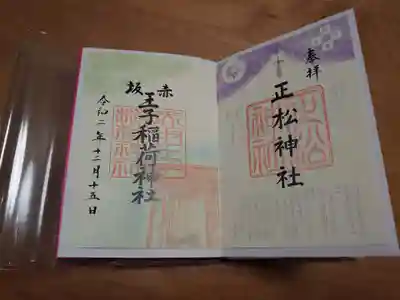 奉拝
正松神社
赤坂
王子稲荷神社
令和二年十二月十五日